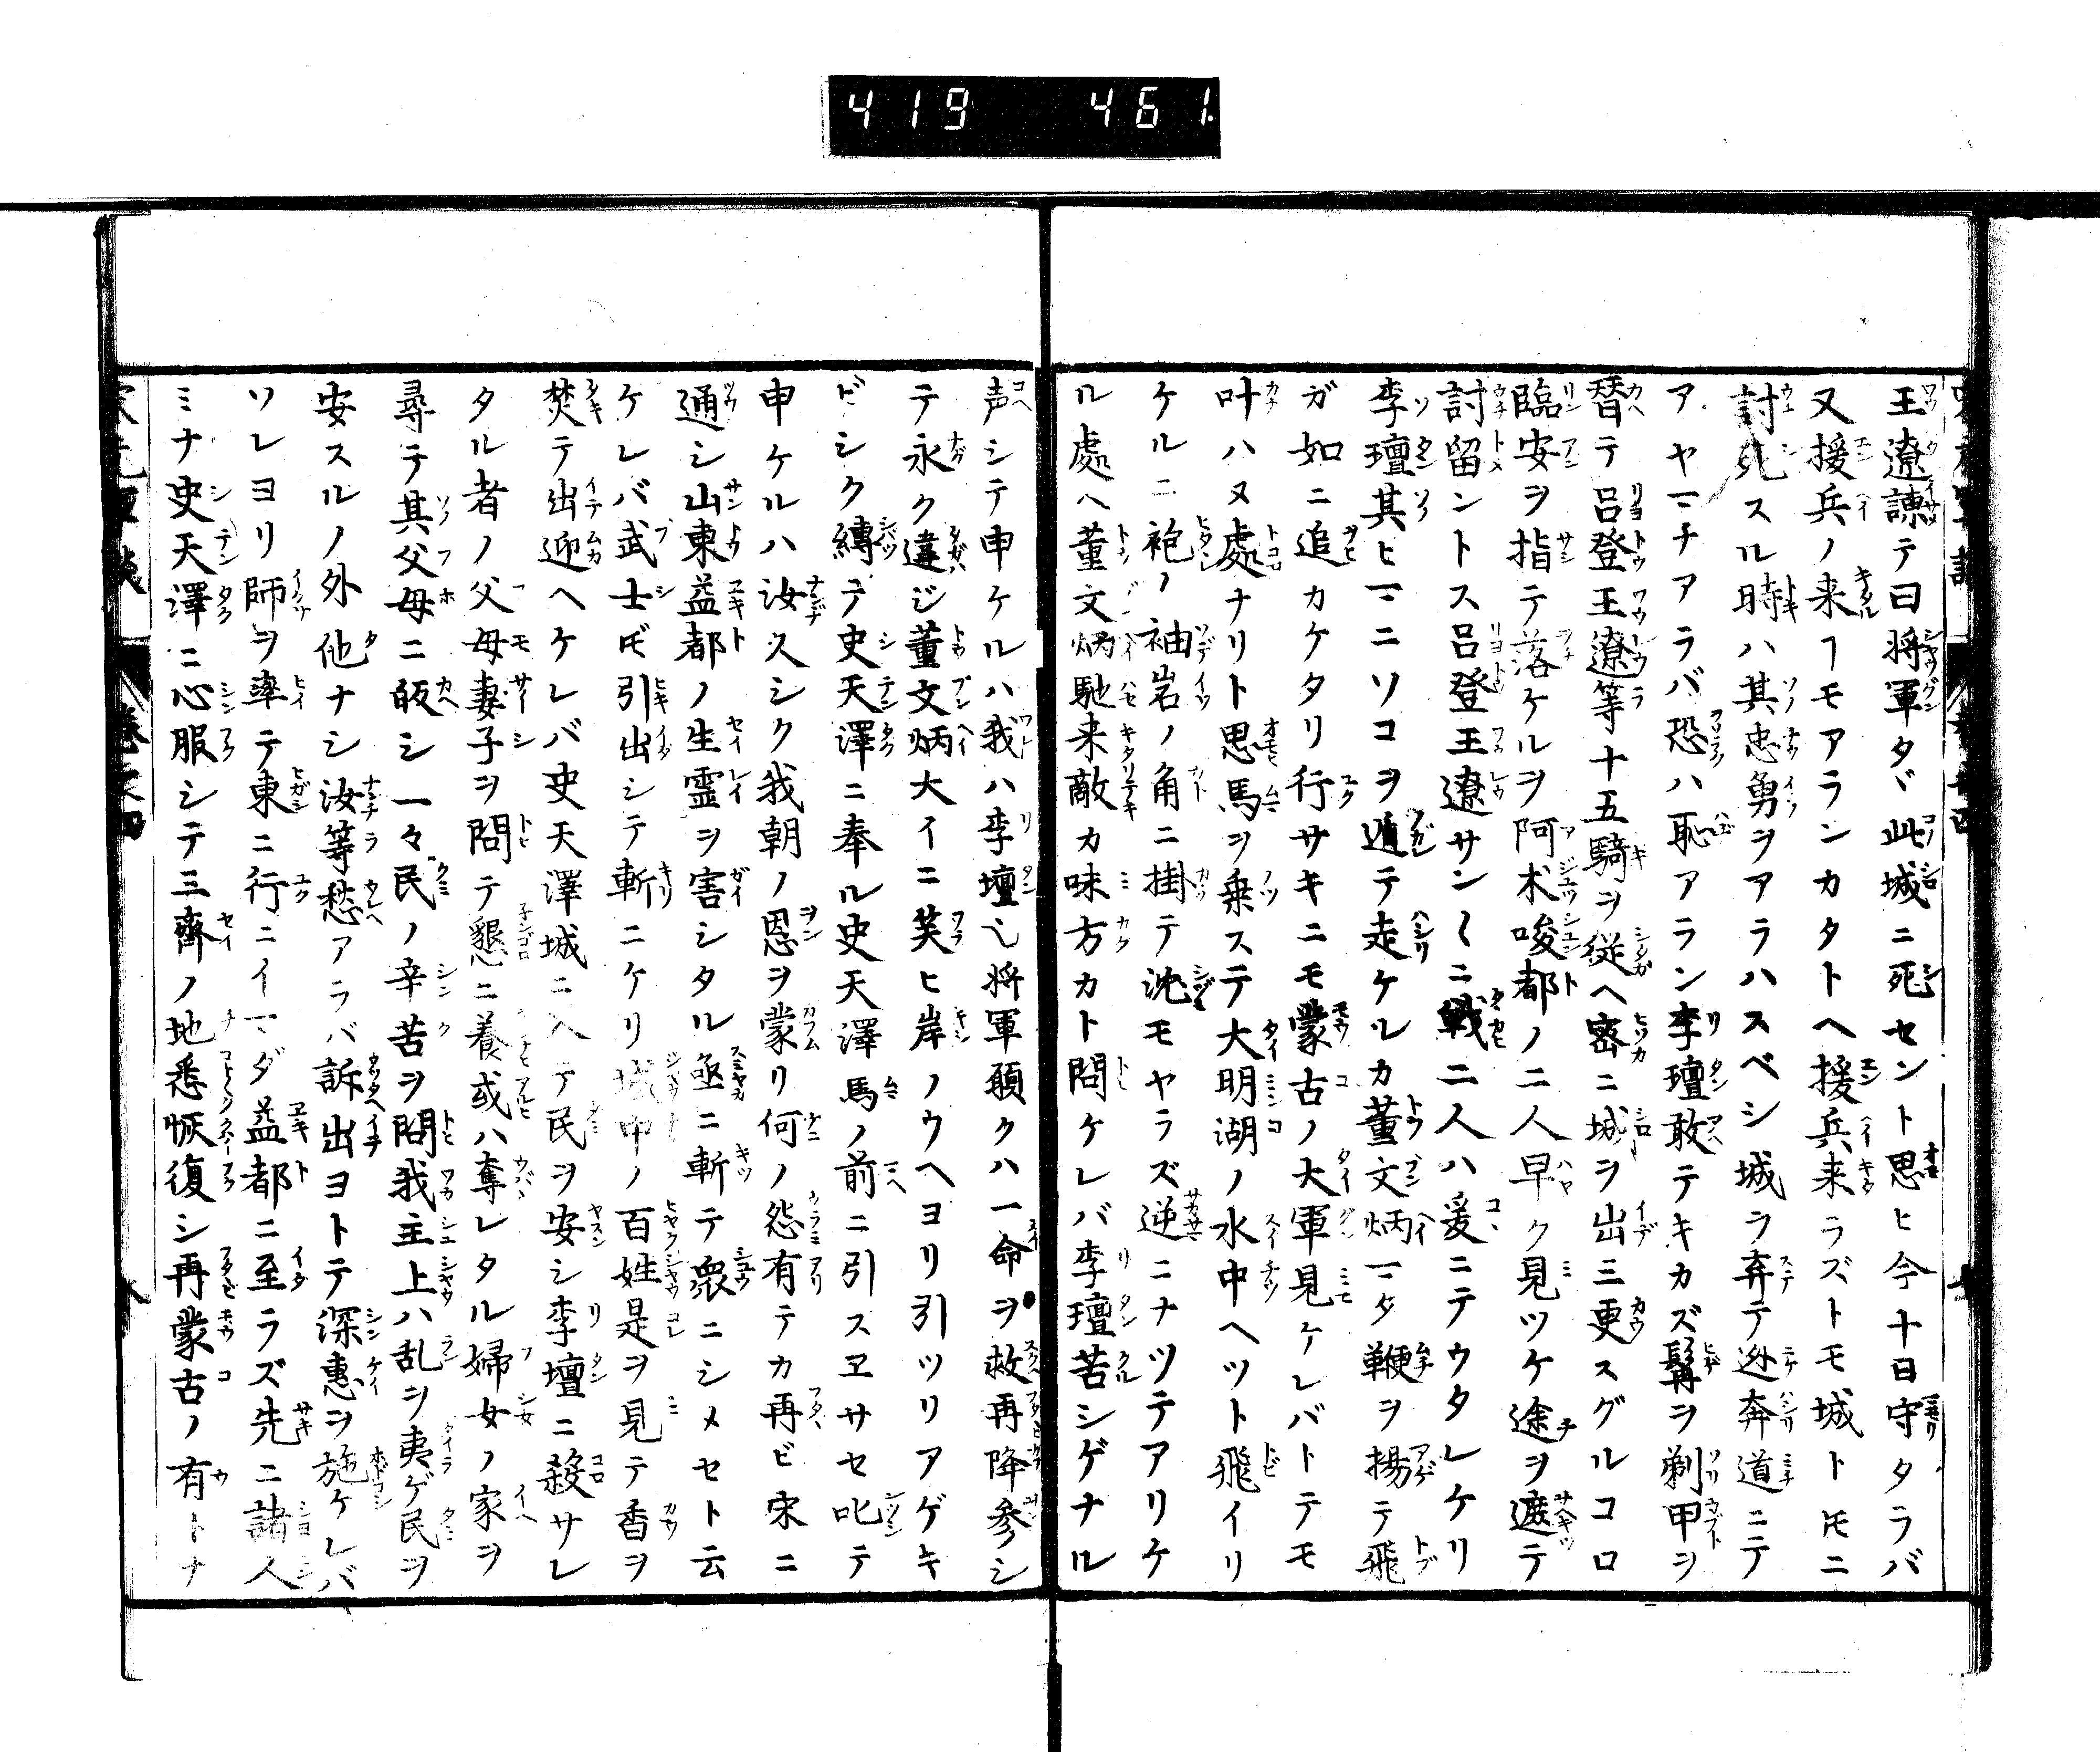 419 461.
王遼諫テ曰将軍タヾ此城ニ死セント思ヒ今十日守タラバ
又援兵ノ来ヿモアランカタトヘ援兵来ラズトモ城トトモニ
討死スル時ハ其忠勇ヲアラハスベシ城ヲ弃テ迯奔道ニテ
アヤマチアラバ恐ハ恥アラン李璮敢テキカズ髯ヲ剃甲ヲ
替テ呂登王遼等十五騎ヲ従ヘ密ニ城ヲ出三更スグルコロ
臨安ヲ指テ落ケルヲ阿术唆都ノ二人早ク見ツケ途ヲ遮テ
討留ントス呂登王遼サン〱ニ戦二人ハ爰ニテウタレケリ
李璮其ヒマニソコヲ遁テ走ケルカ董文炳マタ鞭ヲ揚テ飛
ガ如ニ追カケタリ行サキニモ蒙古ノ大軍見ケレバトテモ
叶ハヌ處ナリト思馬ヲ乗ステ大明湖ノ水中ヘツト飛イリ
ケルニ袍ノ袖岩ノ角ニ掛テ沈モヤラズ逆ニナツテアリケ
ル處ヘ董文炳馳来敵カ味方カト問ケレバ李璮苦シゲナル
声シテ申ケルハ我ハ李璮也将軍願クハ一命ヲ救再降参シ
テ永ク違ジ董文炳大イニ笑ヒ岸ノウヘヨリ引ツリアゲキ
ビシク縛テ史天澤ニ奉ル史天澤馬ノ前ニ引スヱサセ叱テ
申ケルハ汝久シク我朝ノ恩ヲ蒙リ何ノ怨有テカ再ビ宋ニ
通シ山東益都ノ生霊ヲ害シタル亟ニ斬テ衆ニシメセト云
ケレバ武士ドモ引出シテ斬ニケリ城中ノ百姓是ヲ見テ香ヲ
焚テ出迎ヘケレバ史天澤城ニ入テ民ヲ安シ李璮ニ殺サレ
タル者ノ父母妻子ヲ問テ懇ニ養或ハ奪レタル婦女ノ家ヲ
尋テ其父母ニ皈シ一々民ノ辛苦ヲ問我主上ハ乱ヲ夷ゲ民ヲ
安スルノ外他ナシ汝等愁アラバ訴出ヨトテ深惠ヲ施ケレバ
ソレヨリ師ヲ率テ東ニ行ニイマダ益都ニ至ラズ先ニ諸人
ミナ史天澤ニ心服シテ三齊ノ地悉恢復シ再蒙古ノ有トナ